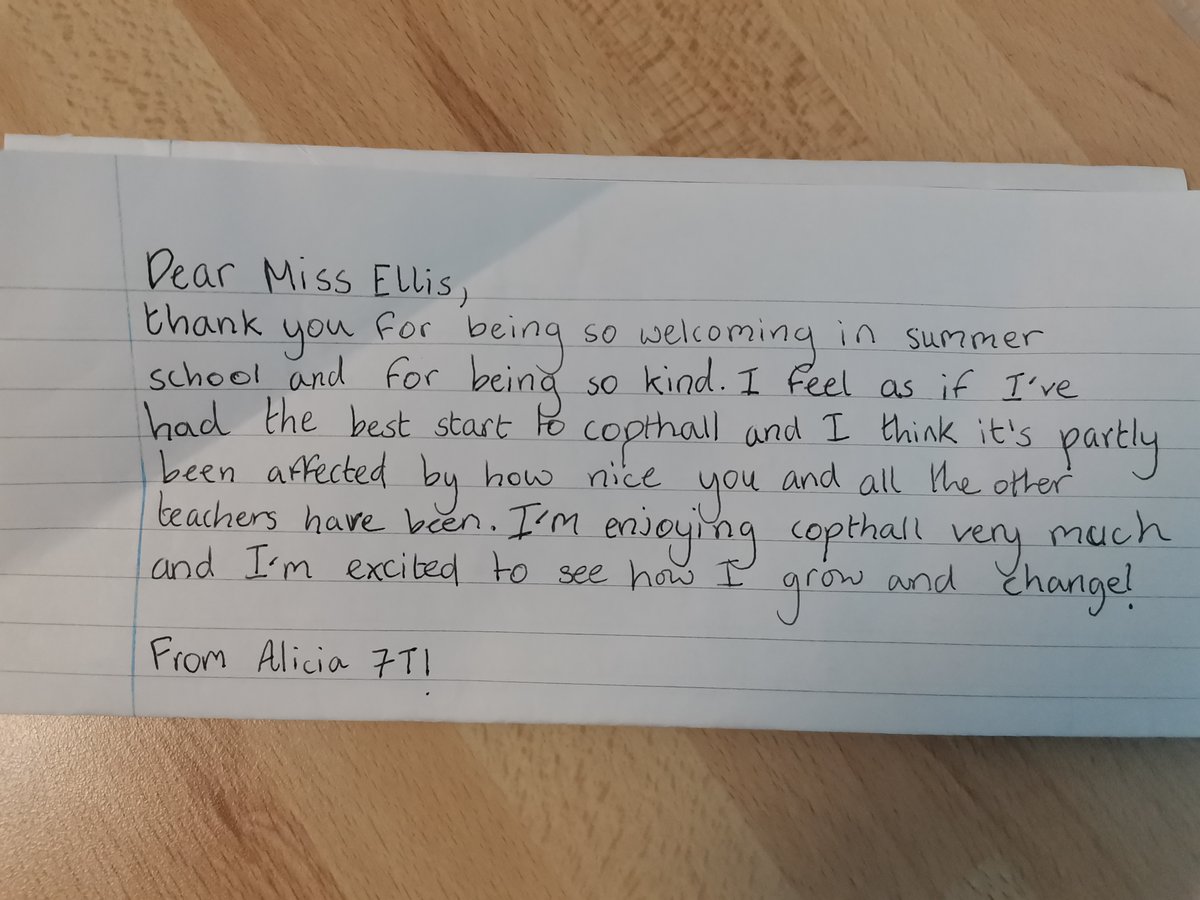 Dear Miss Ellis,
thank you for being so welcoming in summer
school and for being so kind. I feel as if I've
had the best start to copthall and I think it's partly
been affected by how nice you and all the other
teachers have been. I'm enjoying copthall very much
and I'm excited to see how I grow and change!
From Alicia 7T!